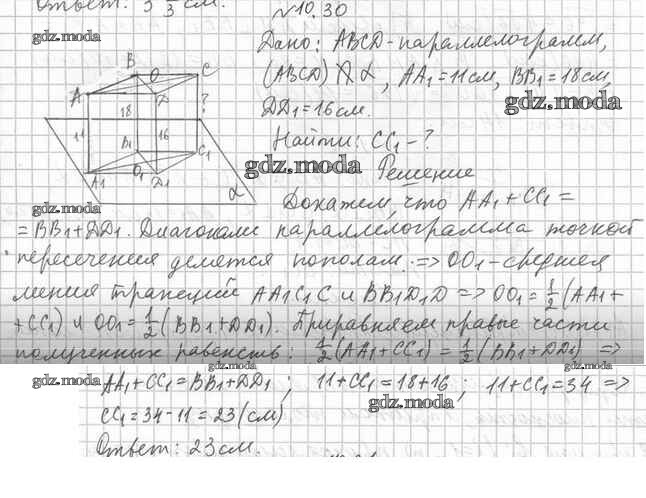 Ответ: 5 1/3 см.
№10.30
gdz.moda
Дано: ABCD - параллелограмм,
(ABCD) ∦ α, AA1 = 11см, BB1 = 18см,
gdz.moda
DD1 = 16см.
Найти: CC1 - ?
gdz.moda
Решение
B O C
A D ?
18
11 B1 16
C1
A1 O1 D1 α
gdz.moda
Докажем, что AA1 + CC1 =
= BB1 + DD1. Диагонали параллелограмма точкой
пересечения делятся пополам. => OO1 - средняя
линия трапеций AA1C1C и BB1D1D => OO1 = 1/2 (AA1 +
+ CC1) и OO1 = 1/2 (BB1 + DD1). Приравняем правые части
полученных равенств: 1/2 (AA1 + CC1) = 1/2 (BB1 + DD1) =>
gdz.moda gdz.moda gdz.moda
AA1 + CC1 = BB1 + DD1; 11 + CC1 = 18 + 16; 11 + CC1 = 34 =>
gdz.moda
CC1 = 34 - 11 = 23 (см)
Ответ: 23 см.